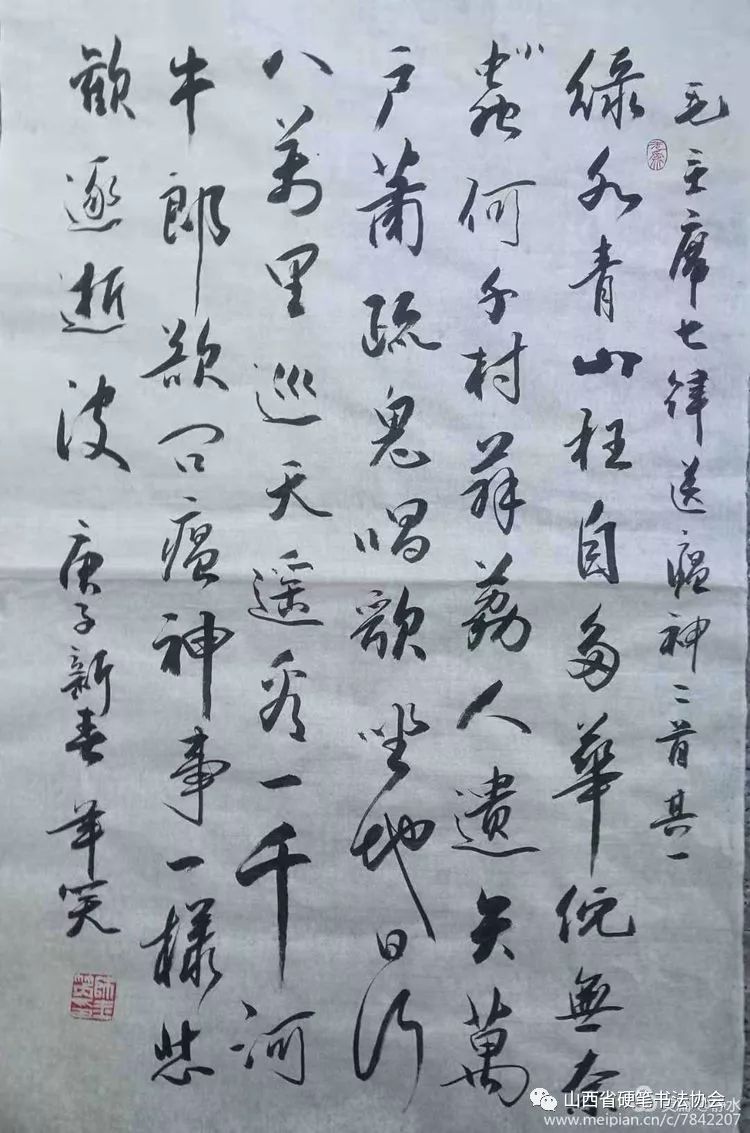 毛主席七律送瘟神二首其一
綠水青山枉自多華佗無奈
小蟲何千村薜荔人遺矢萬
戶蕭疏鬼唱歌坐地日行
八萬里巡天遥看一千河
牛郎欲问瘟神事一樣悲
歡逐逝波 庚子新春
山西省硬笔书法协会
www.meipian.cn/c/7842207